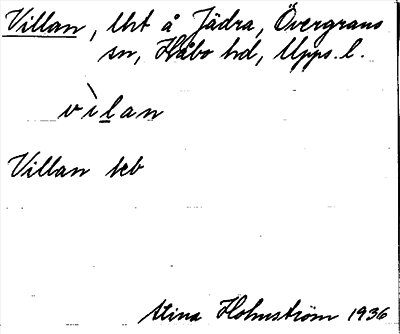 Villan, lht å Jädra, Övergrans
sn, Håbo hd, Upps. l.
vìlan
Villan kb
Stina Holmström 1936